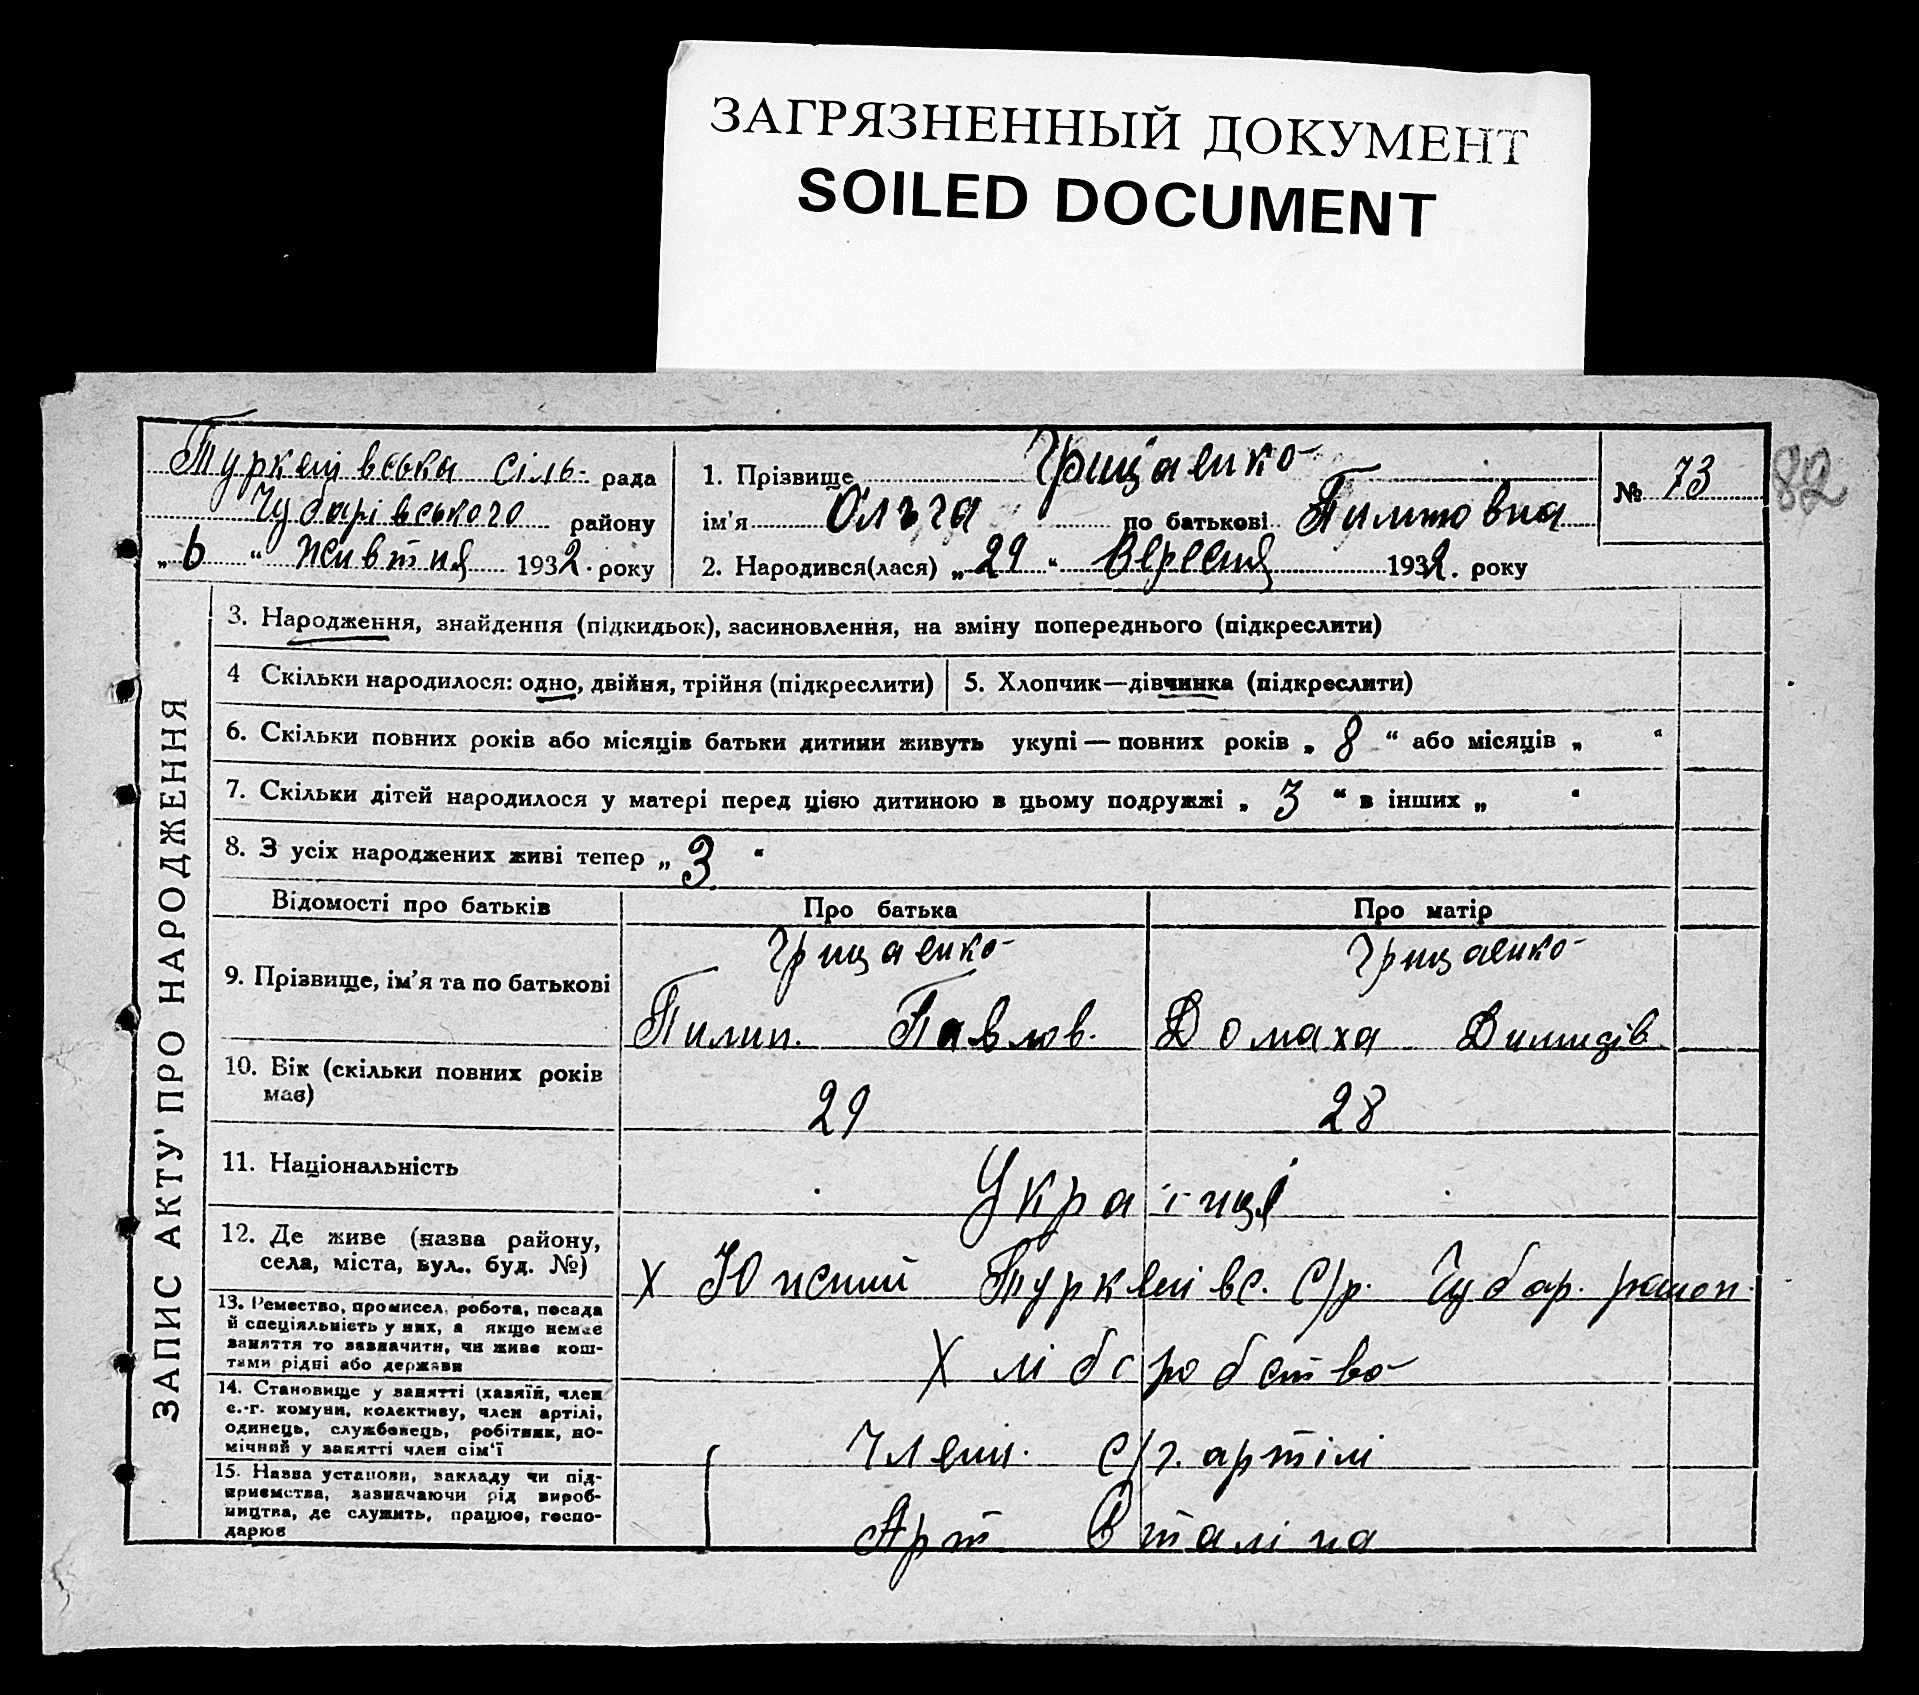 ЗАГРЯЗНЕННЫЙ ДОКУМЕНТ
SOILED DOCUMENT
82
Туркенівська сіль- рада
Чубарівського району
„6“ Жовтня 1932. року
1. Прізвище Грищенко
ім'я Ольга по батькові Пилиповна
2. Народився(лася) „29“ Вересня 1932. року
№ 73
ЗАПИС АКТУ' ПРО НАРОДЖЕННЯ
3. Народження, знайдення (підкидьок), засиновлення, на зміну попереднього (підкреслити)
4 Скільки народилося: одно, двійня, трійня (підкреслити)
5. Хлопчик—дівчинка (підкреслити)
6. Скільки повних років або місяців батьки дитини живуть укупі — повних років „ 8 “ або місяців „ “
7. Скільки дітей народилося у матері перед цією дитиною в цьому подружжі „ 3 “ в інших „ “
8. З усіх народжених живі тепер „ 3 “
Відомості про батьків
Про батька
Про матір
9. Прізвище, ім'я та по батькові
Грищенко
Пилип. Павлов.
Грищенко
Домаха
10. Вік (скільки повних років
має)
29
28
11. Національність
Українці
12. Де живе (назва району,
села, міста, вул., буд. №)
х Южний Туркенівс. С/р. Чубар. район.
13. Ремество, промисел, робота, посада
й спеціяльність у них, а якщо немає
заняття то зазначити, чи живе кош-
тами рідні або держави
Х ліборобство
14. Становище у занятті (хазяїн, член
с.-г. комуни, колективу, член артілі,
одинець, службовець, робітник, по-
мічний у занятті член сім'ї
Член. С/г. артілі
15. Назва установи, закладу чи під-
приємства, зазначаючи рід вироб-
ництва, де служить, працює, госпо-
дарює
Арт Сталіна